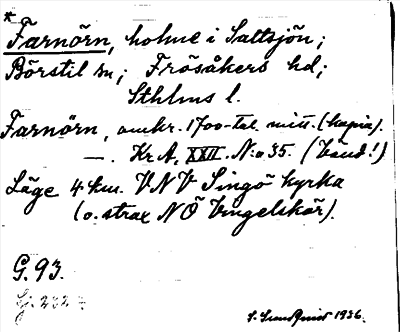 *
Farnörn, holme i Saltsjön;
Börstil sn; Frösåkers hd;
Sthlms l.
Farnörn, omkr. 1700-tal. mitt. (kopia).
—. Kr A, XXII. N:o 35. (Vänd!)
Läge 4 km. VNV Singö kyrka
(o. strax NÖ Vingelskär).
G. 93.
S. Sundqvist 1936.